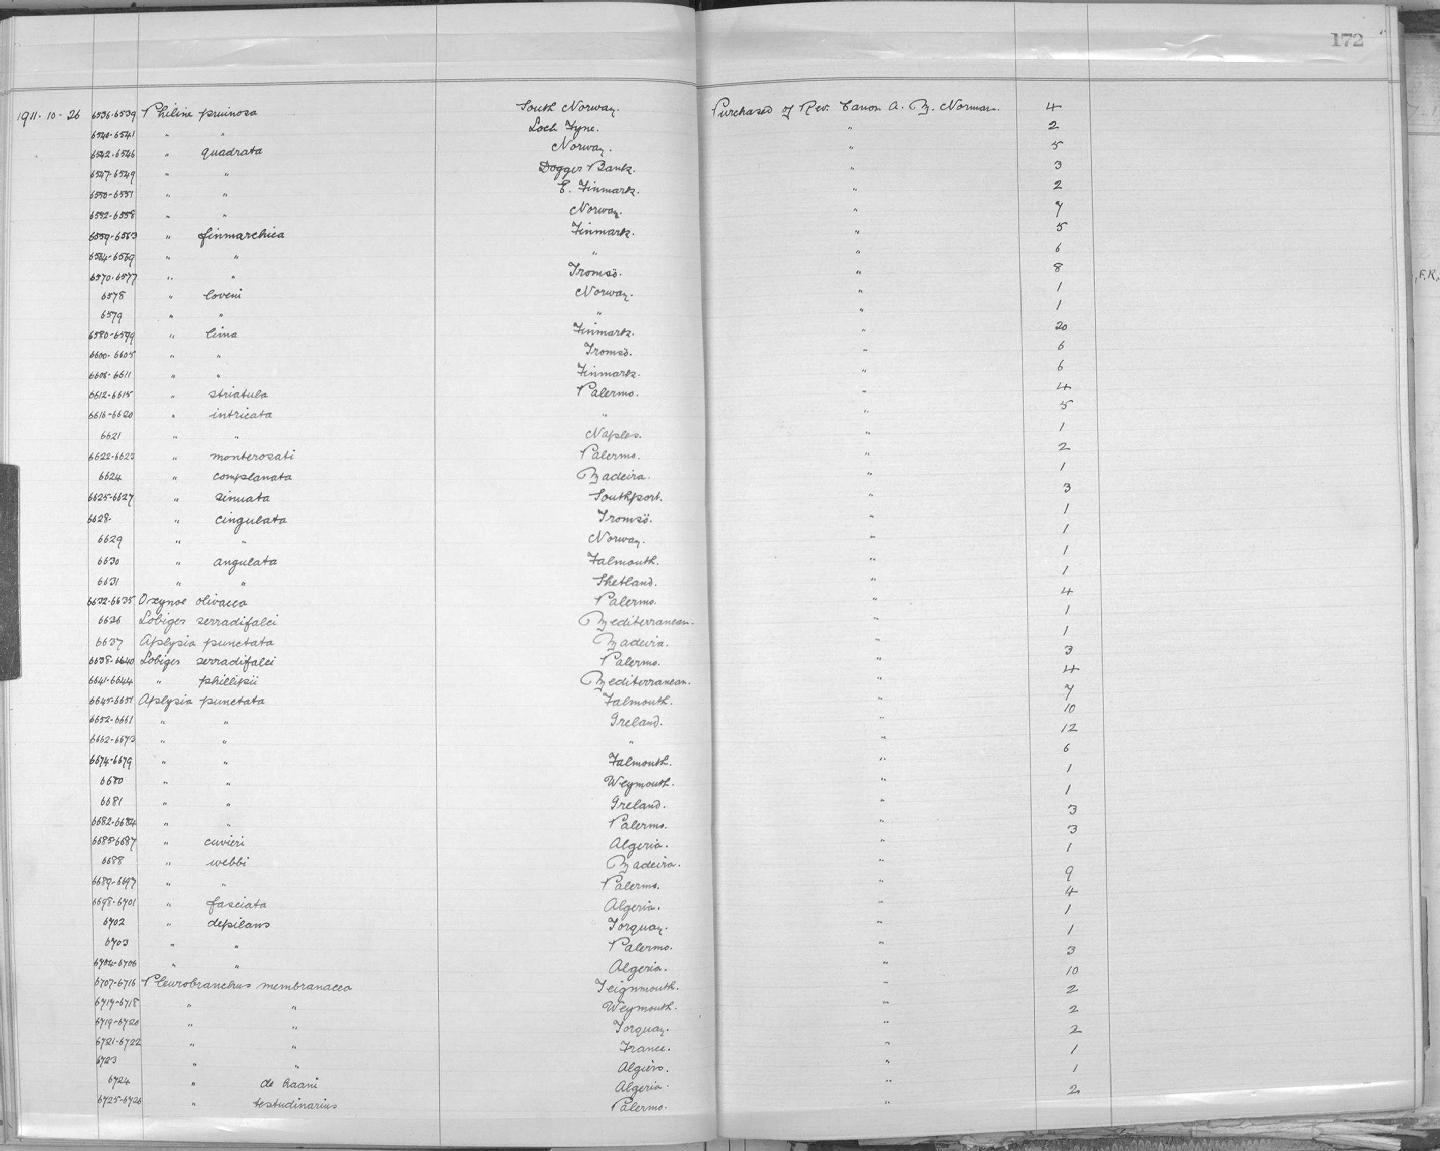 172
1911.10.26 6536-6539 Philine pruinosa South Norway. Purchased of Rev. Canon A. M. Norman. 4
6540-6541 " " Loch Fyne. " 2
6542-6546 " quadrata Norway. " 5
6547-6549 " " Dogger Bank. " 3
6550-6551 " " E. Finmark. " 2
6552-6558 " " Norway. " 7
6559-6563 " finmarchica Finmark. " 5
6564-6569 " " " " 6
6570-6577 " " Tromsö. " 8
6578 " loveni Norway. " 1
6579 " " " " 1
6580-6599 " lima Finmark. " 20
6600-6605 " " Tromsö. " 6
6606-6611 " " Finmark. " 6
6612-6615 " striatula Palermo. " 4
6616-6620 " intricata " " 5
6621 " " Naples. " 1
6622-6623 " monterosati Palermo. " 2
6624 " complanata Madeira. " 1
6625-6627 " sinuata Southport. " 3
6628. " cingulata Tromsö. " 1
6629 " " Norway. " 1
6630 " angulata Falmouth. " 1
6631 " " Shetland. " 1
6632-6635 Oxynoe olivacea Palermo. " 4
6636 Lobiger serradifalci Mediterranean. " 1
6637 Aplysia punctata Madeira. " 1
6638-6640 Lobiger serradifalci Palermo. " 3
6641-6644 " phillipii Mediterranean. " 4
6645-6651 Aplysia punctata Falmouth. " 7
6652-6661 " " Ireland. " 10
6662-6673 " " " " 12
6674-6679 " " Falmouth. " 6
6680 " " Weymouth. " 1
6681 " " Ireland. " 1
6682-6684 " " Palermo. " 3
6685-6687 " cuvieri Algeria. " 3
6688 " webbi Madeira. " 1
6689-6697 " " Palermo. " 9
6698-6701 " fasciata Algeria. " 4
6702 " depilans Torquay. " 1
6703 " " Palermo. " 1
6704-6706 " " Algeria. " 3
6707-6716 Pleurobranchus membranacea Teignmouth. " 10
6717-6718 " " Weymouth. " 2
6719-6720 " " Torquay. " 2
6721-6722 " " France. " 2
6723 " " Algiers. " 1
6724 " de haani Algeria. " 1
6725-6726 " testudinarius Palermo. " 2